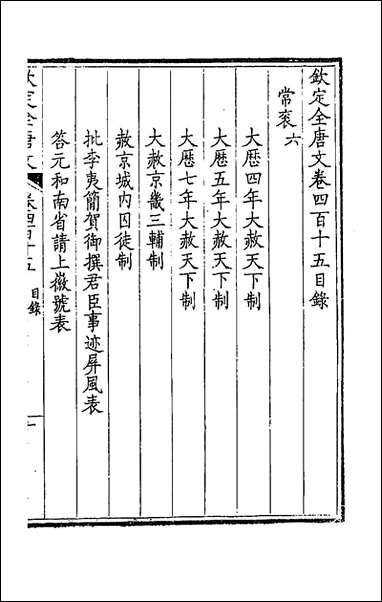 欽定全唐文卷四百十五目錄
常袞六
大厯四年大赦天下制
大厯五年大赦天下制
大厯七年大赦天下制
大赦京畿三輔制
赦京城內囚徒制
批李夷簡賀御撰君臣事迹屏風表
答元和南省請上徽號表
欽定全唐文 卷四百十五 目錄 一